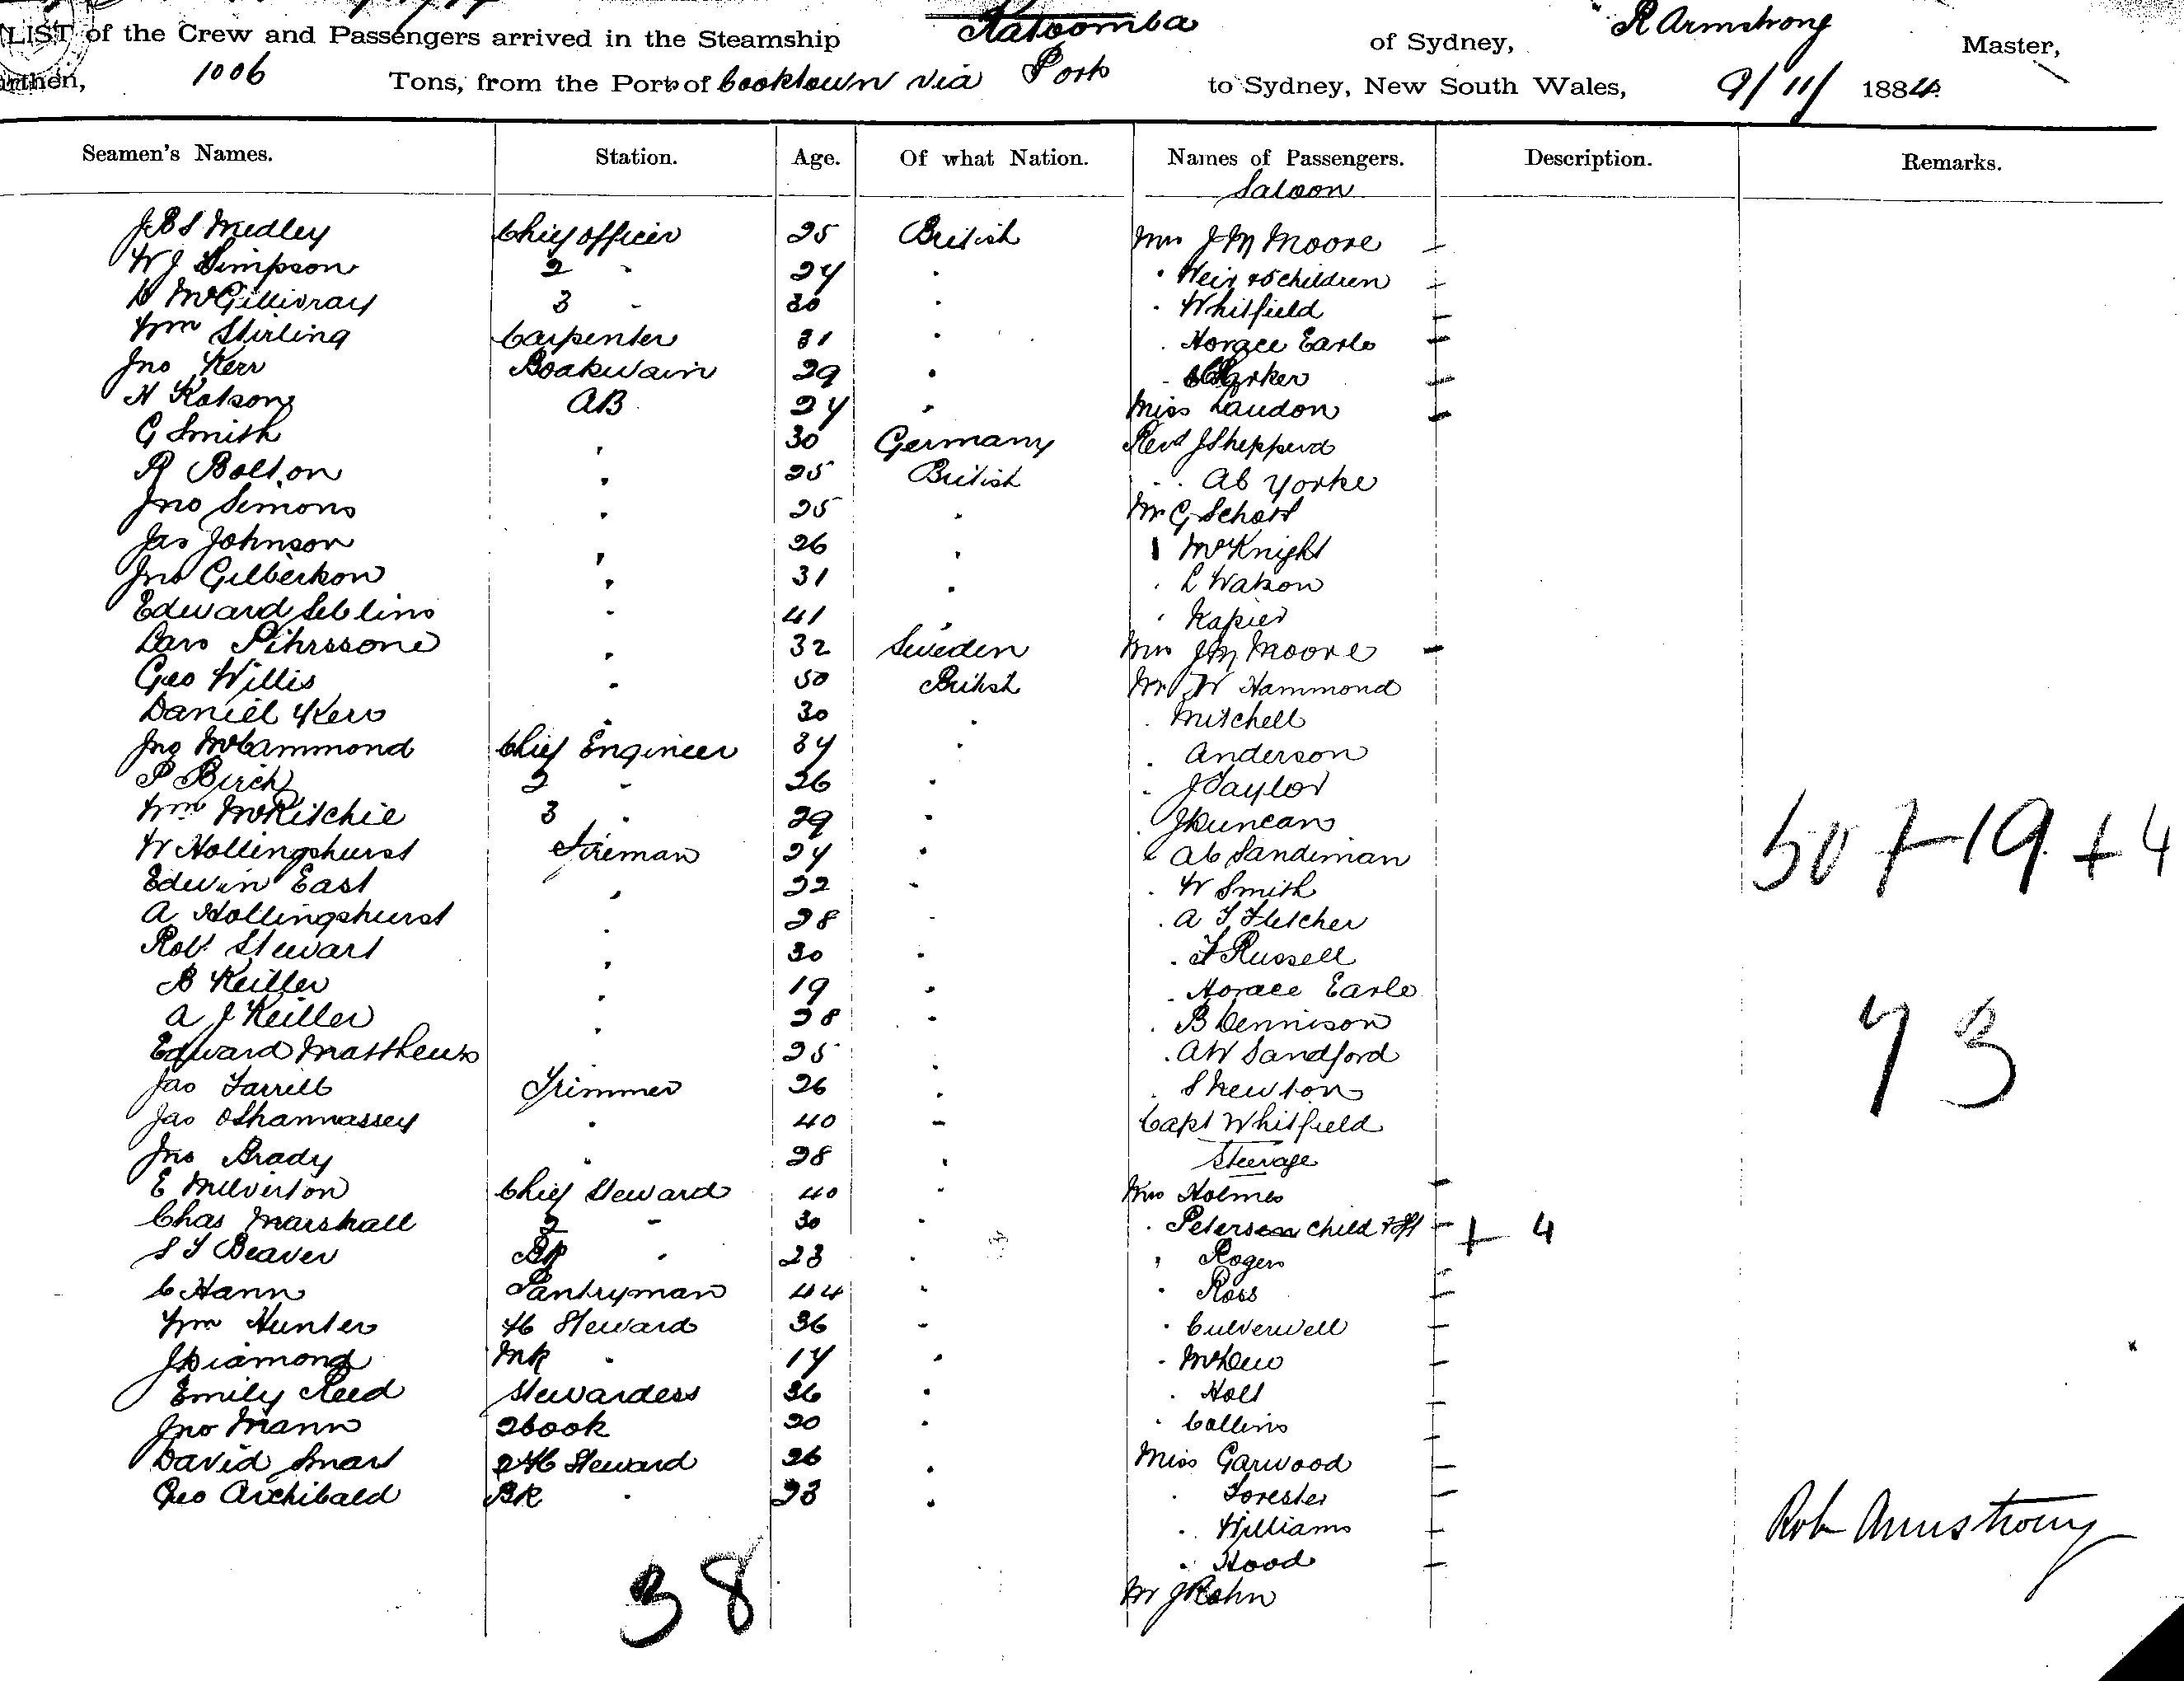 LIST of the Crew and Passengers arrived in the Steamship Katoomba of Sydney, R Armstrong Master,
1006 Tons, from the Port of Cooktown via Ports to Sydney, New South Wales, 9/11/ 1884.
Seamen's Names. Station. Age. Of what Nation. Names of Passengers. Description. Remarks.
Saloon
J B S Medley Chief officer 25 British Mrs J M Moore –
W J Simpson 2 " 24 " " Weir & 5 children –
McGillivray 3 " 30 " " Whitfield –
Wm Stirling Carpenter 31 " " Horace Earle –
Jno Kerr Boatswain 29 " " Parker –
H Katson AB 24 " Miss Laudon –
G Smith " 30 Germany Revd J Shepperd
R Bolton " 25 British " Ab Yorke
Jno Simons " 25 " Mr G Schott
Jas Johnson " 26 " " McKnight
Jno Gilbertson " 31 " " L Watson
Edward " 41 " " Kapier
Lars Pihrssone " 32 Sweden Mrs J M Moore –
Geo Willis " 50 British Mr W Hammond
Daniel Kerr " 30 " " Mitchell
Jno McCammond Chief Engineer 34 " " Anderson
P Birch 2 " 26 " " J Taylor
Wm McRitchie 3 " 29 " " J Duncan
W Hollingshurst Fireman 24 " " Ab Sandiman 50 + 19 + 4
Edwin East " 22 " " W Smith
A Hollingshurst " 28 " " A T Fletcher
Robt Stewart " 30 " " F Russell
B Keiller " 19 " " Horace Earle
A J Keiller " 28 " " B Dennison 73
Edward Matthews " 25 " " A W Sandford
Jas Farrell Trimmer 26 " " S Newton
Jas OShannassey " 40 " Capt Whitfield
Jno Brady " 28 " Steerage
E Milverton Chief Steward 40 " Mrs Holmes –
Chas Marshall 2 " 30 " " Petersen child – + 4
S T Beaver BR " 23 " " Rogers
C Hann Pantryman 44 " " Ross –
Wm Hunter Steward 36 " " Culverwell –
J Diamond MR " 17 " " McDew –
Emily Reed Stewardess 36 " " Holt –
Jno Mann 2 Cook 20 " " Collins –
David Smart 2 Steward 26 " Miss Garwood –
Geo Archibald BR " 23 " " Forester –
" Williams –
" Hood –
Mr J Rohn
38
Rob Armstrong